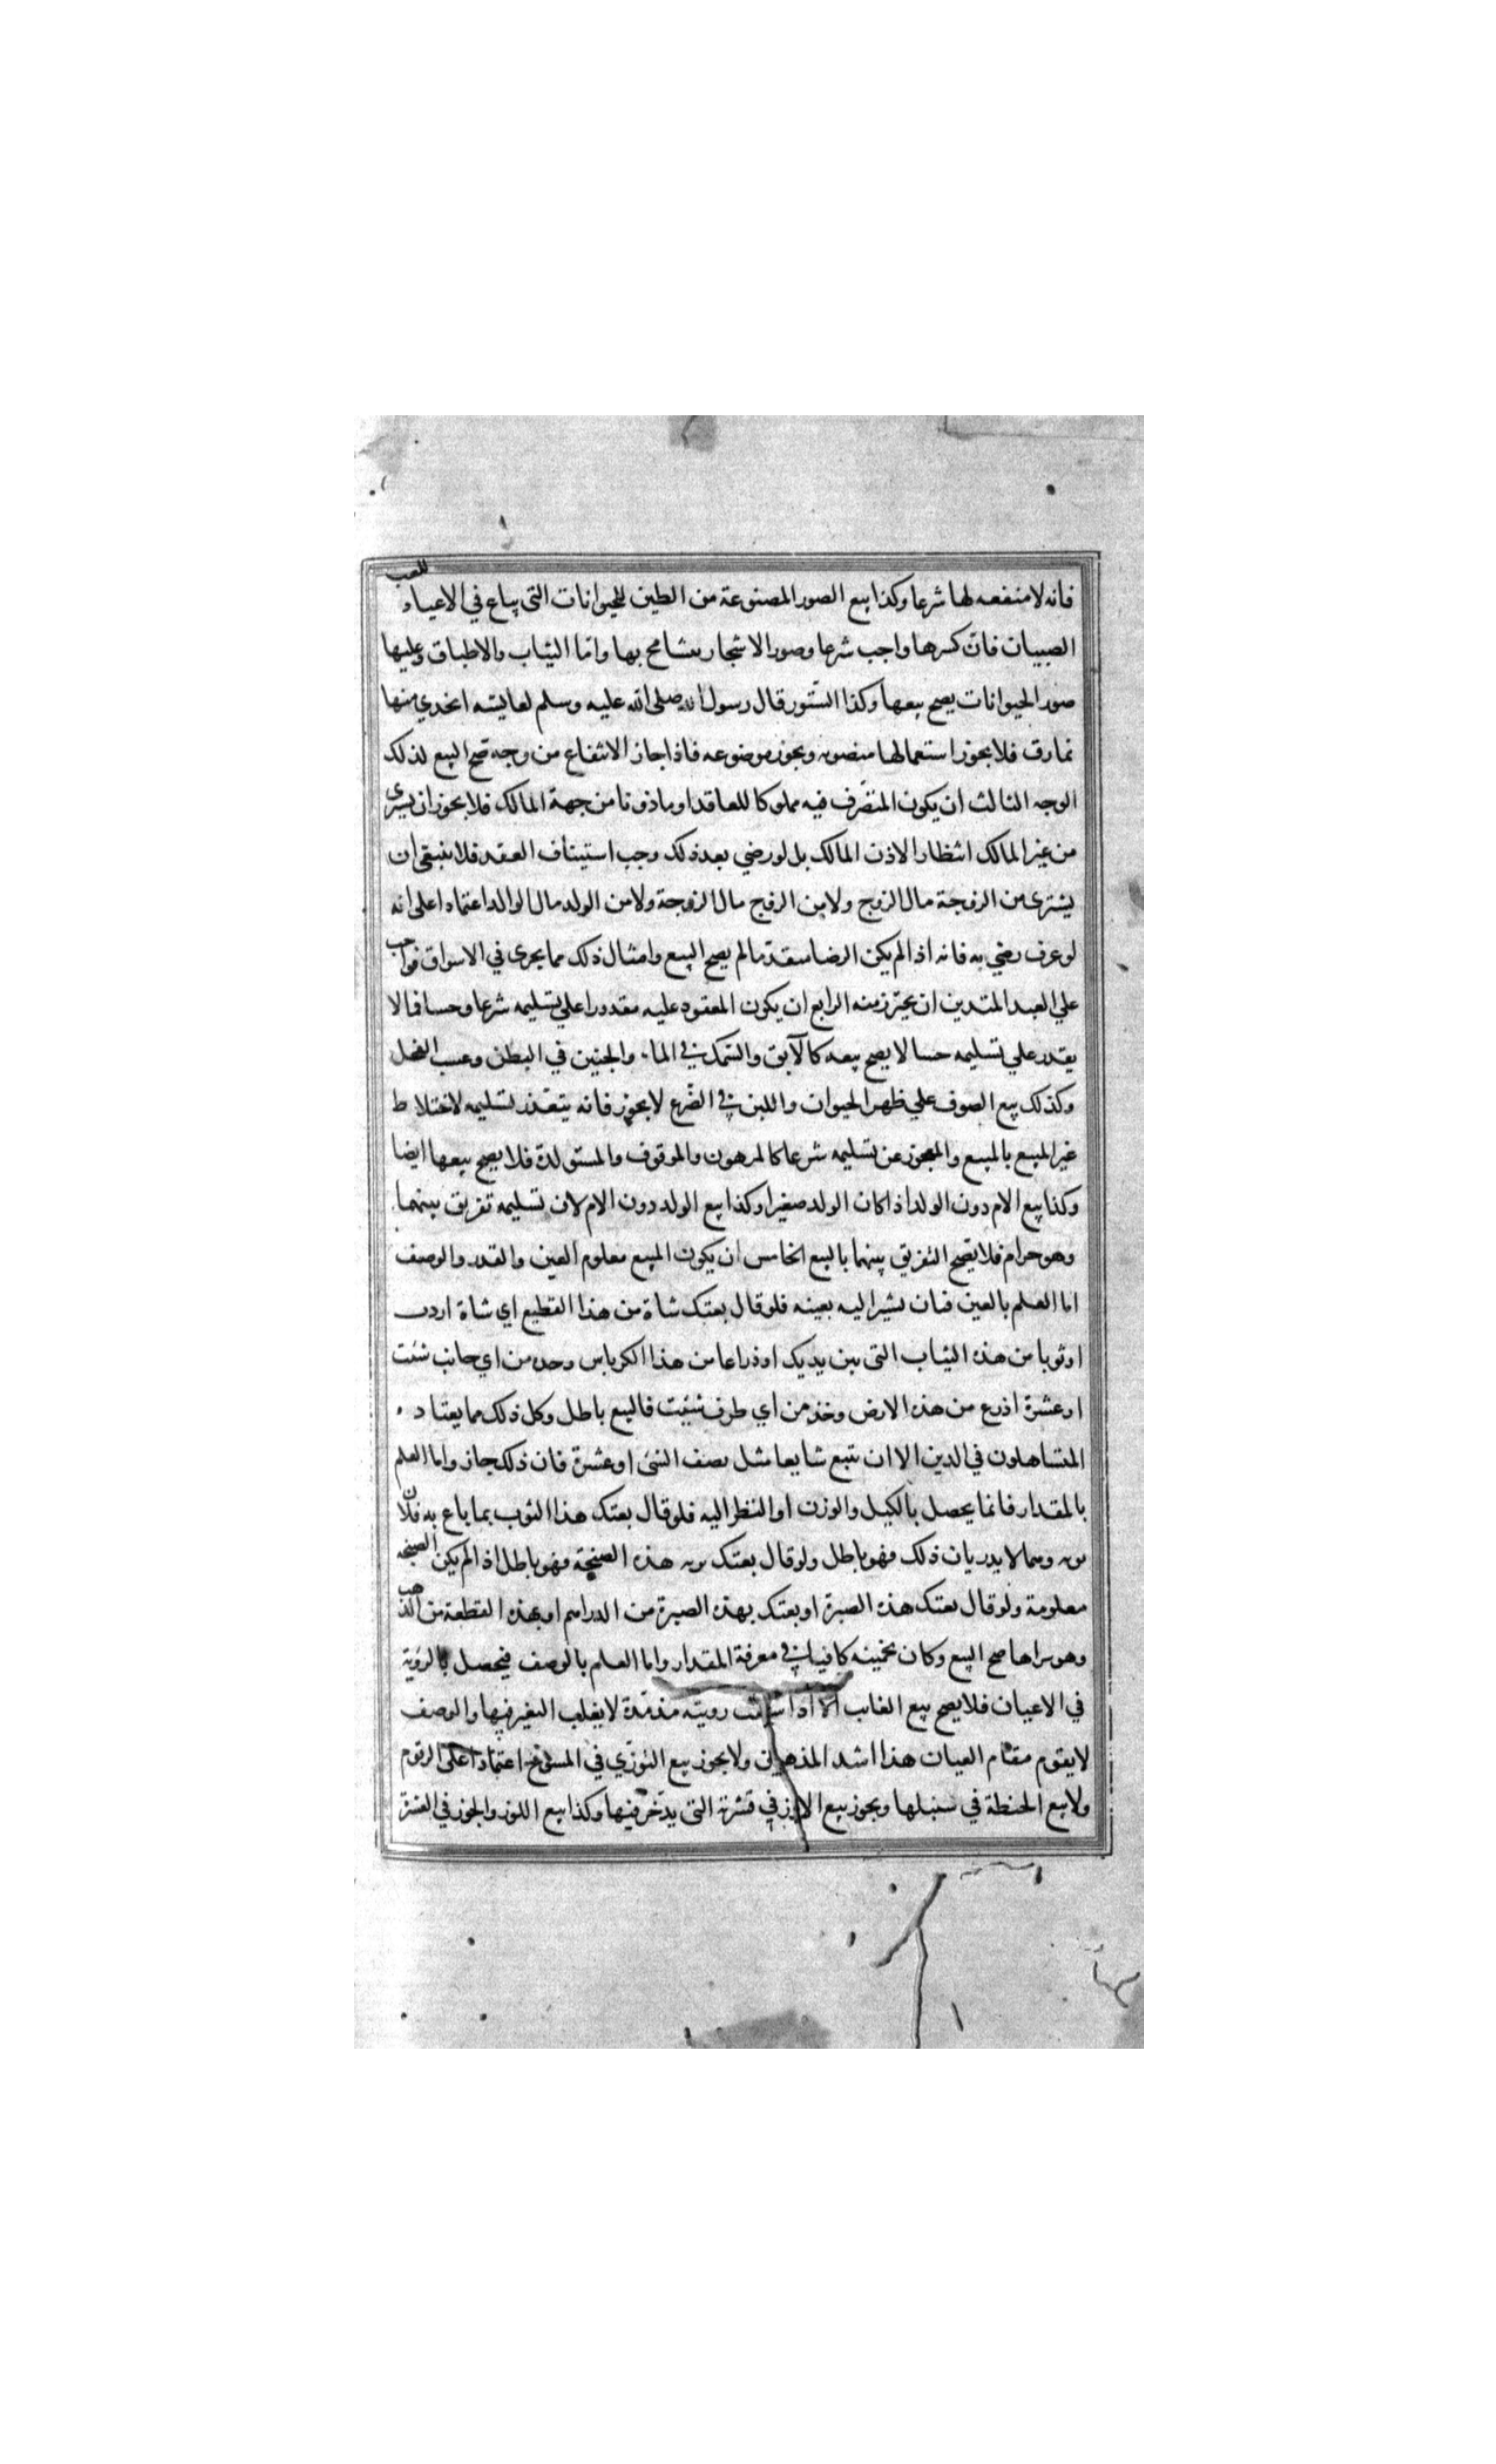 فانه لا منفعه لها شرعا وكذا بيع الصور المصنوعة من الطين للحيوانات التي يباع في الاعياد للعب
الصبيان فان كسرها واجب شرعا وصور الاشجار يتسامح بها واما الثياب والاطباق وعليها
صور الحيوانات يصح بيعها وكذا الستور قال رسول الله صلى الله عليه وسلم لعايشه اتخذي منها
نمارق فلا يجوز استعمالها منصوبه ويجوز موضوعه فاذا جاز الانتفاع من وجه صح البيع لذلك
الوجه الثالث ان يكون المتصرف فيه مملوكا للعاقد او ماذونا من جهة المالك فلا يجوز ان يشترى
من غير المالك انتظارا لاذن المالك بل لو رضي بعد ذلك وجب استيناف العقد فلا ينبغي ان
يشترى من الزوجة مال الزوج ولا من الزوج مال الزوجة ولا من الولد مال الوالد اعتمادا على انه
لو عرف رضي به فانه اذا لم يكن الرضا متقدما لم يصح البيع وامثال ذلك مما يجرى في الاسواق فواجب
علي العبد المتدين ان يحترز منه الرابع ان يكون المعقود عليه مقدورا علي تسليمه شرعا وحسا فما لا
يقدر علي تسليمه حسا لا يصح بيعه كالآبق والسمك في الماء والجنين في البطن وعسب الفحل
وكذلك بيع الصوف علي ظهر الحيوان واللبن في الضرع لا يجوز فانه يتعذر تسليمه لاختلاط
غير المبيع بالمبيع والمعجوز عن تسليمه شرعا كالمرهون والموقوف والمستولدة فلا يصح بيعها ايضا
وكذا بيع الام دون الولد اذا كان الولد صغيرا وكذا بيع الولد دون الام لان تسليمه تفريق بينهما
وهو حرام فلا يصح التفريق بينهما بالبيع الخامس ان يكون المبيع معلوم العين والقدر والوصف
اما العلم بالعين فبان يشير اليه بعينه فلو قال بعتك شاة من هذا القطيع اي شاة اردت
او ثوبا من هذه الثياب التي بين يديك او ذراعا من هذا الكرباس وحده من اي جانب شئت
او عشرة اذرع من هذه الارض وخذ من اي طرف شئت فالبيع باطل وكل ذلك مما يعتاده
المتساهلون في الدين الا ان تبيع شايعا مثل نصف الشئ او عشرة فان ذلك جاز واما العلم
بالمقدار فانما يحصل بالكيل والوزن او النظر اليه فلو قال بعتك هذا الثوب بما باع به فلان
ثوبه وهما لا يدريان ذلك فهو باطل ولو قال بعتك بزنه هذه الصنجة فهو باطل اذا لم يكن الصنجه
معلومة ولو قال بعتك هذه الصبرة او بعتك بهذه الصبرة من الدراهم او بهذه القطعة من الذهب
وهو يراها صح البيع وكان تخمينه كافيا في معرفة المقدار واما العلم بالوصف فيحصل بالرؤية
في الاعيان فلا يصح بيع الغائب الا اذا سبقت رويته مذ مدة لا يغلب التغير فيها والوصف
لا يقوم مقام العيان هذا اشد المذهبين ولا يجوز بيع التوزي في المسوخ اعتمادا على الرقوم
ولا بيع الحنطة في سنبلها ويجوز بيع الارز في قشرته التي يدخر فيها وكذا بيع اللوز والجوز في القشرة